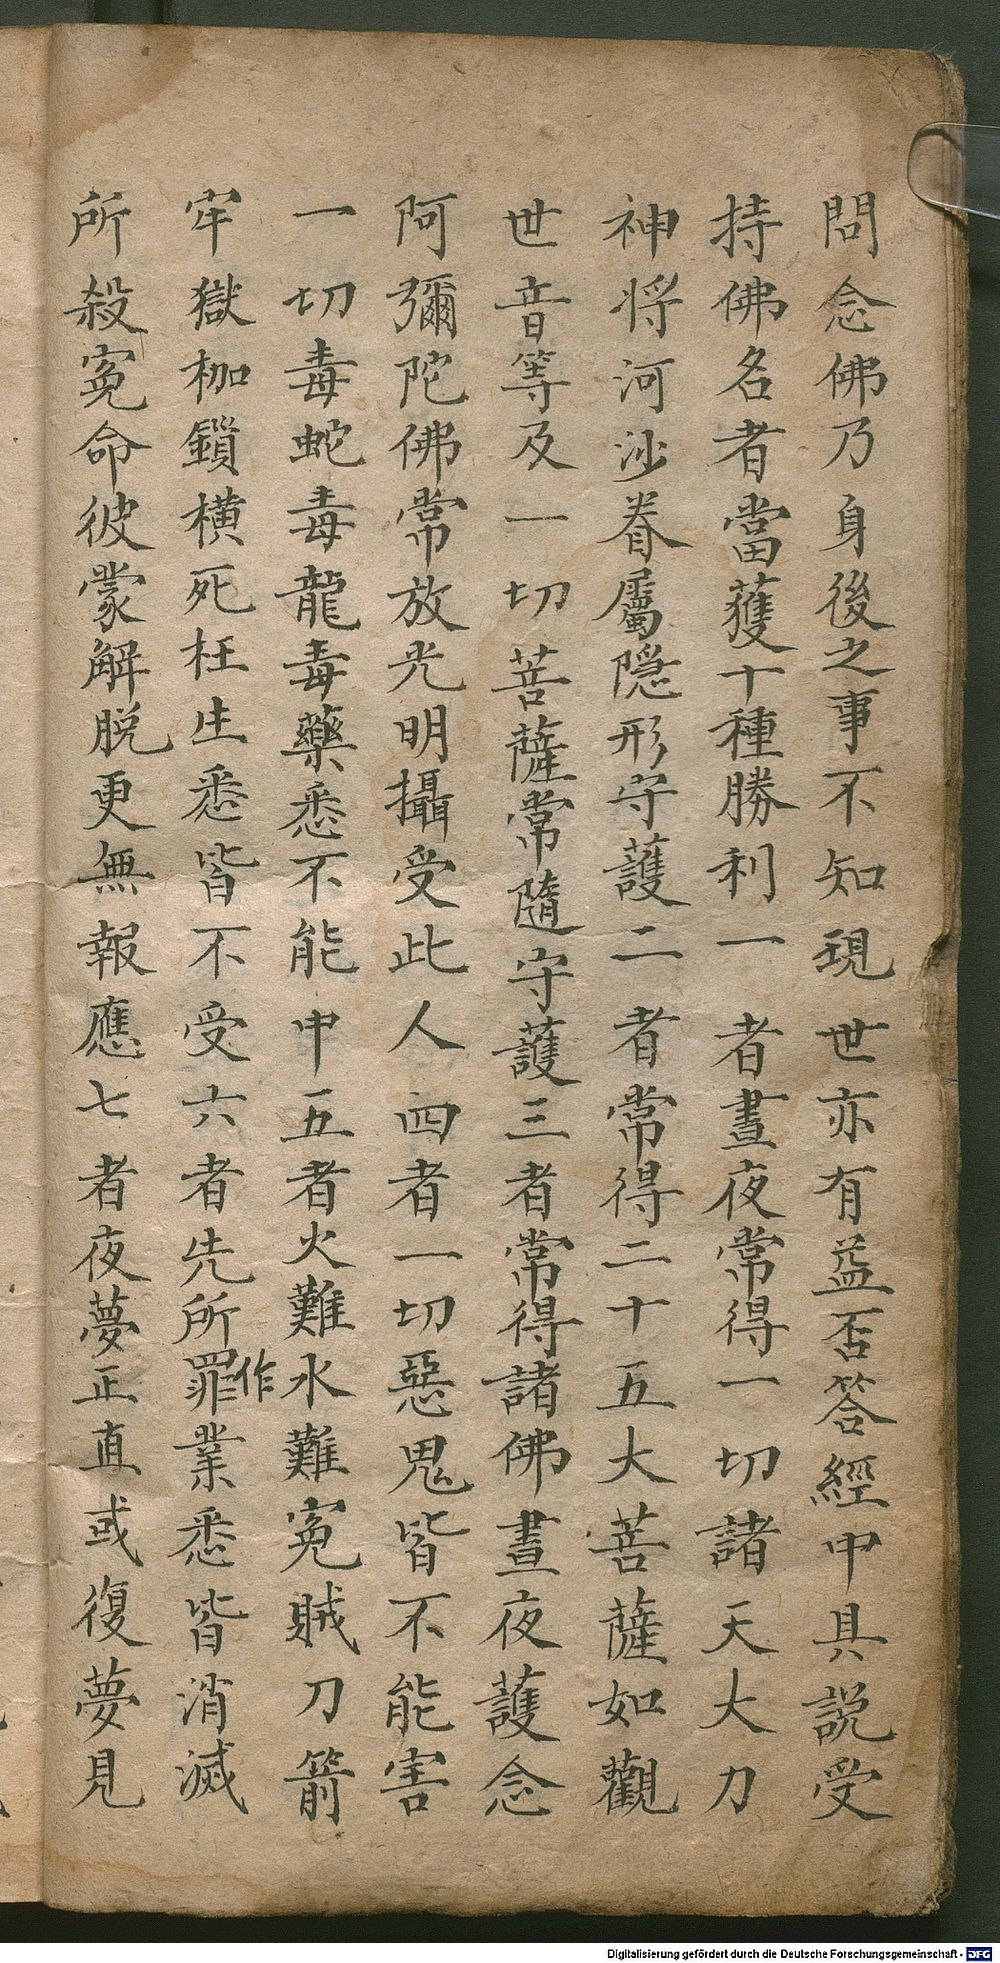 問念佛乃身後之事不知現世亦有益否答經中具説受
持佛名者當獲十種勝利一者晝夜常得一切諸天大力
神將河沙眷屬隱形守護二者常得二十五大菩薩如觀
世音等及一切菩薩常隨守護三者常得諸佛晝夜護念
阿彌陀佛常放光明攝受此人四者一切惡鬼皆不能害
一切毒蛇毒龍毒藥悉不能中五者火難水難寃賊刀箭
牢獄枷鎖橫死枉生悉皆不受六者先所作罪業悉皆消滅
所殺寃命彼蒙解脱更無報應七者夜夢正直或復夢見
Digitalisierung gefördert durch die Deutsche Forschungsgemeinschaft - DFG